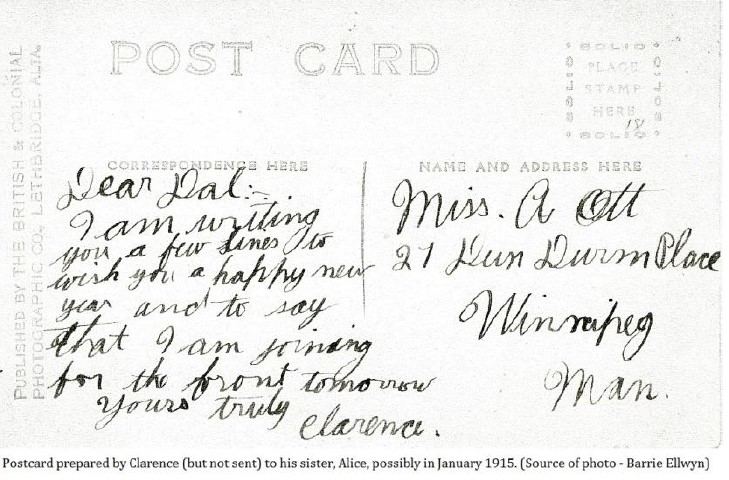 PUBLISHED BY THE BRITISH & COLONIAL
PHOTOGRAPHIC CO., LETHBRIDGE, ALTA.
POST CARD
SOLIO
PLACE
STAMP
HERE
SOLIO
181
CORRESPONDENCE HERE
Dear Dal:-
I am writing
you a few lines to
wish you a happy new
year and to say
that I am joining
for the front tomorrow
Yours truly
Clarence.
NAME AND ADDRESS HERE
Miss. A Ott
27 Dun Durm Place
Winnipeg
Man.
Postcard prepared by Clarence (but not sent) to his sister, Alice, possibly in January 1915. (Source of photo - Barrie Ellwyn)